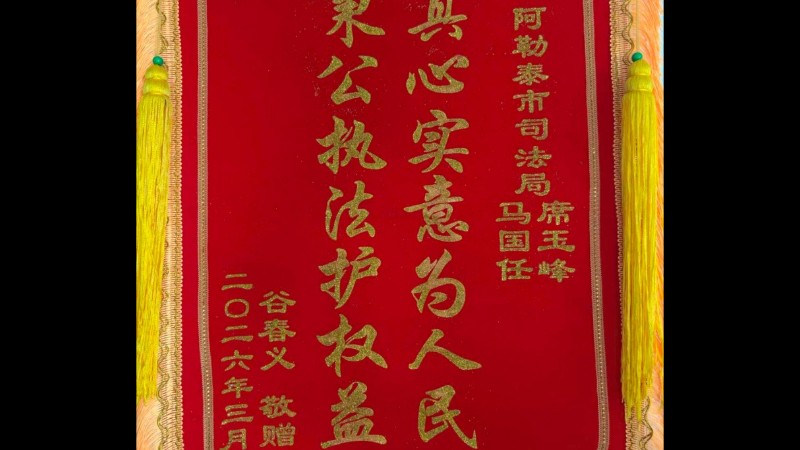 阿勒泰市司法局
席玉峰
马国任
真心实意为人民
秉公执法护权益
谷春义 敬赠
二〇二六年三月